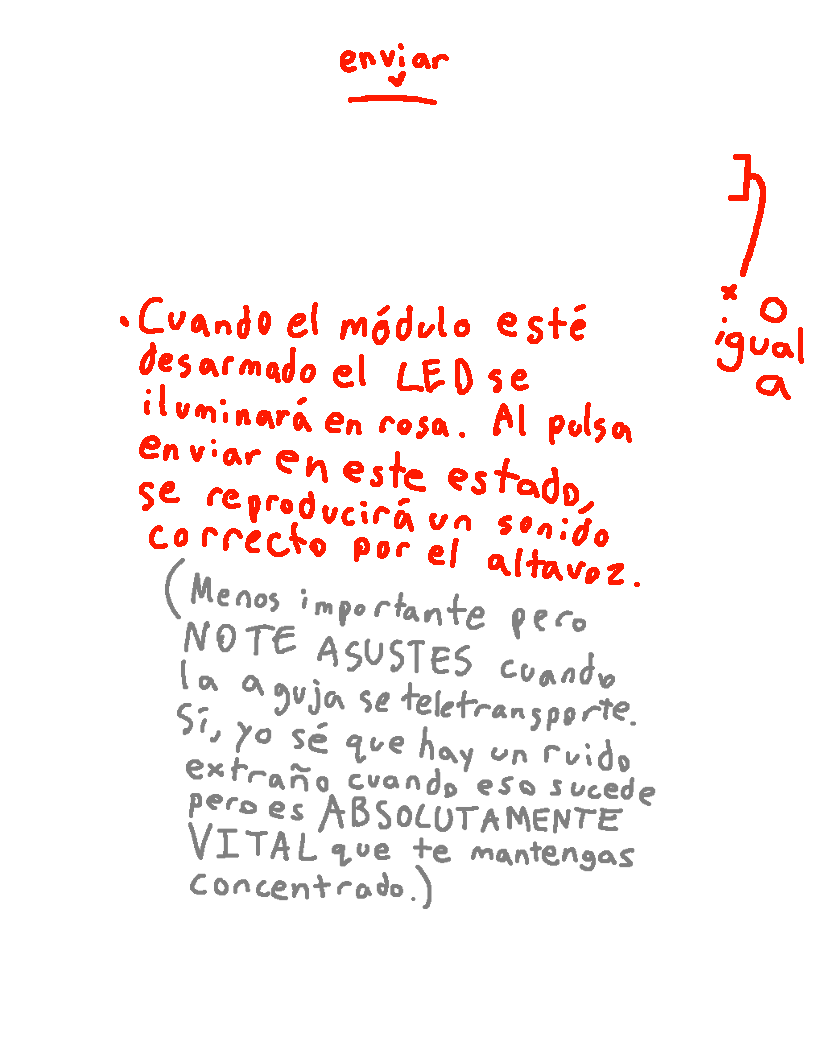 enviar
x o
igual
a
• Cuando el módulo esté
desarmado el LED se
iluminará en rosa. Al pulsa
enviar en este estado,
se reproducirá un sonido
correcto por el altavoz.
(Menos importante pero
NO TE ASUSTES cuando
la aguja se teletransporte.
Sí, yo sé que hay un ruido
extraño cuando eso sucede
pero es ABSOLUTAMENTE
VITAL que te mantengas
concentrado.)